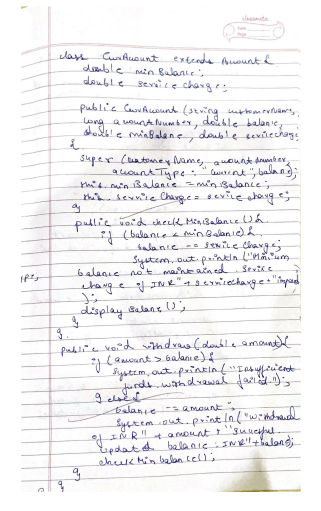 classmate
Date
Page
class CurAccount extends Account {
double min Balance;
double service charge;
public CurAccount (string customerName,
long account Number, double balance,
double minBalane, double servicecharge
{
super (customer Name, account number,
account Type : "current", balane);
this. min Balance = min Balance;
this. service Charge = service charge;
}
public void check MinBalance () {
if (balance < min Balance) {
balance -= service Charge;
System. out. println ("Minium
balance not maintained. Service
charge of INR" + servicecharge + "imposed
);
display Balane ();
}
}.
public void withdraw (double amount) {
if (amount > balance) {
System. out. println ("Insufficient
funds. withdrawal failed.");
} else {
balance -= amount ";
System. out. println ("Withdrawal
of INR" + amount + "sucessful.
updated balance : INR" + balane);
check Min balance ();
}
}